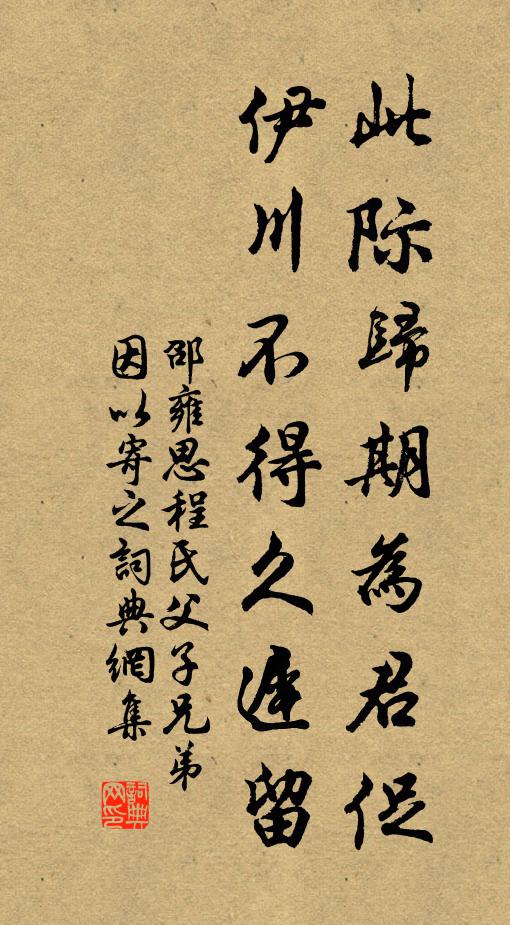 此际歸期為君促
伊川不得久遲留
邵雍思程氏父子兄弟
因以寄之詞典網集
詞典
网印